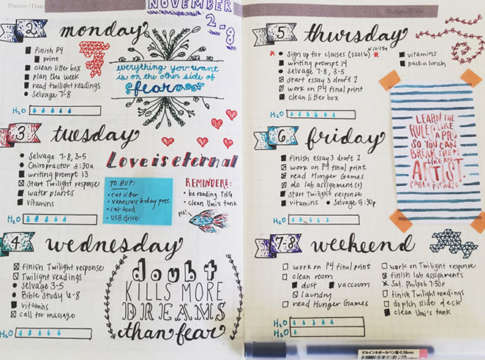 NOVEMBER
2-8
2 monday
finish P4
print
clean litter box
plan the week
read twilight readings
Selvage 7-8
H2O
everything you want
is on the other side of
fear
3 tuesday
Selvage 7-8, 3-5
Chiropractor
writing prompt 13
Start Twilight response
water plants
vitamins
H2O
Love is eternal
TO BUY:
cat litter
cat food
USB drive
REMINDERS:
clean Umi's tank
4 wednesday
finish Twilight response
Twilight readings
Selvage 3-5
Bible Study 6-8
vitamins
call for massage
H2O
doubt
KILLS MORE
DREAMS
than fear
5 thursday
Sign up for classes
vitamins
pack a lunch
writing prompt 14
Selvage 7-8, 3-5
start essay 3 draft 2
work on P4 final print
clean litter box
H2O
6 friday
finish essay 3 draft 2
work on P4 final print
read Hunger Games
start Twilight response
vitamins
Selvage
H2O
LEARN THE
RULES LIKE
A PRO,
SO YOU CAN
BREAK THEM
LIKE AN
ARTIST.
7-8 weekend
work on P4 final print
clean room
dust
vacuum
laundry
read Hunger Games
work on Twilight response
finish lab assignments
finish Twilight readings
clean Umi's tank